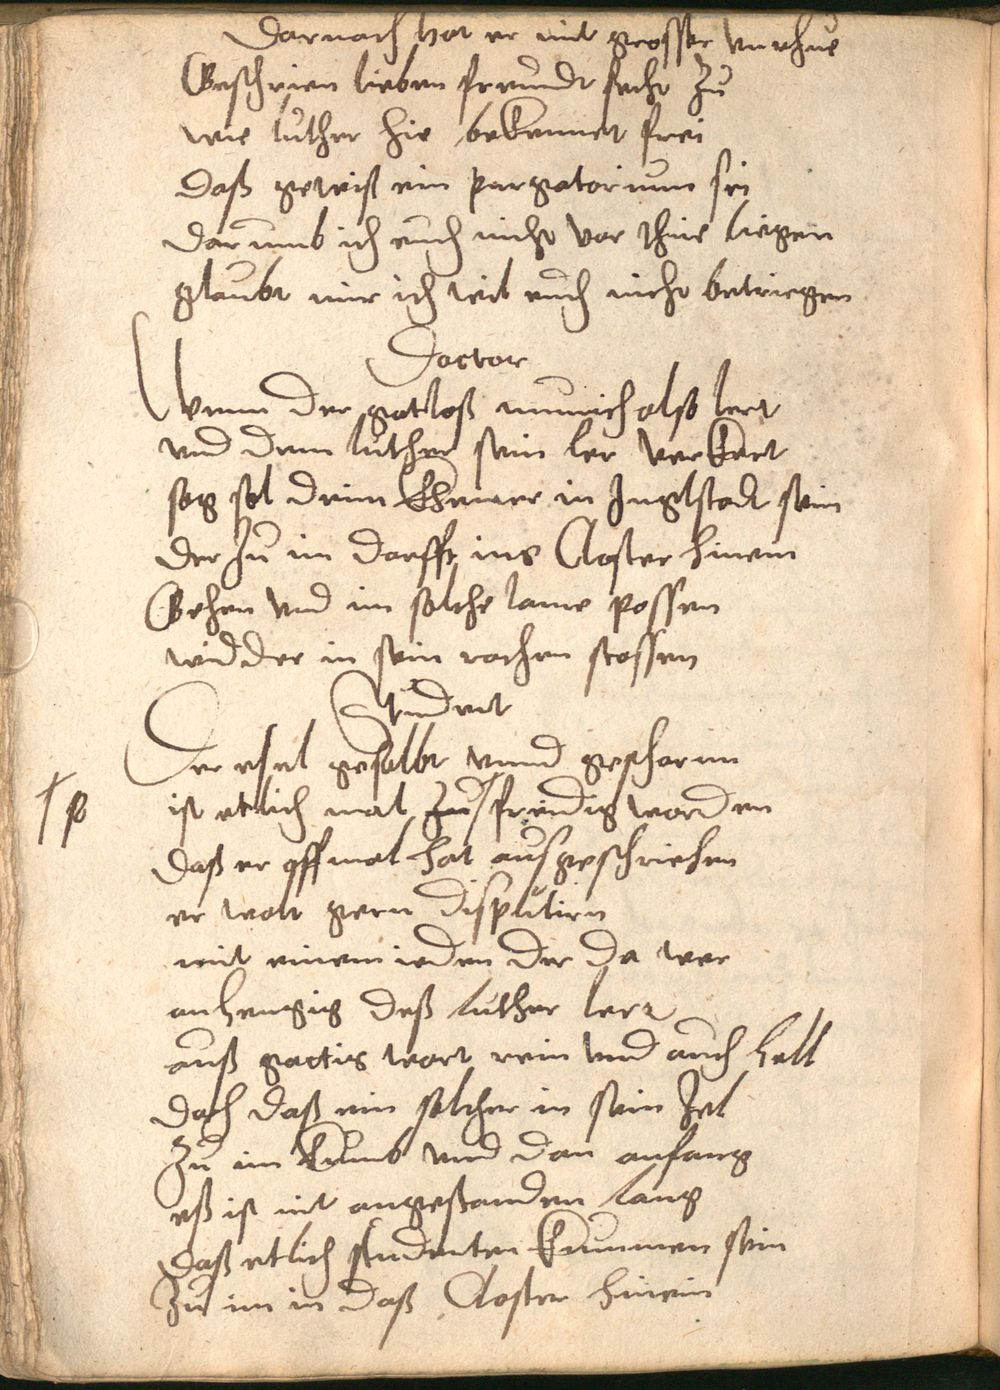 Darnach hat er mit grosser vnrhue
Geschrien lieben freundt secht zu
wie luther hie bekennet frei
daß gewiß ein purgatorium sei
darumb ich euch nicht vor thue liegen
glaubt mir ich wil euch nicht betriegen
Doctor
Wenn der gotloß munich also lert
vnd dem luther sein ler verkert
sag sol deinn keiner in Inglstadt sein
der zu im dorfft ins Closter hinein
Gehen vnd im solche lame possen
widder in sein rachen stossen
Student
Der esel gesalbt vnnd geschorun
ist etlich mal zu freudig worden
daß er offmal hat ausgeschriehen
er wolt gern disputirn
mit einem ieden der da wer
anhengig deß luther lere
auß gottis wort rein vnd auch hell
doch daß ein solcher in sein Zel
zu im kumb vnd dan anfang
eß ist nit angestanden lang
daß etlich studenten kummen sein
zu im in daß Closter hinein